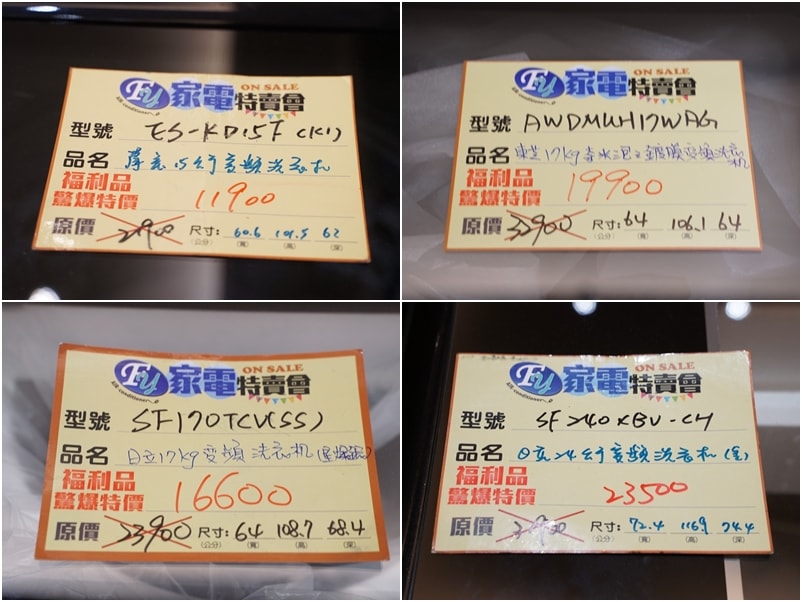 Fu 家電特賣會 ON SALE
型號 ES-KD15F (K1)
品名 聲寶15公斤變頻洗衣机
福利品
驚爆特價 11900
原價 尺寸: 60.6 101.5 62
(公分) (寬) (高) (深)
Fu 家電特賣會 ON SALE
型號 AWDMUH17WAG
品名 東芝17kg 鍍膜變頻洗衣机
福利品
驚爆特價 19900
原價 32900 尺寸: 64 106.1 64
(公分) (寬) (高) (深)
Fu 家電特賣會 ON SALE
air conditioner
型號 SF170TCV(SS)
品名 日立17kg變頻洗衣机(星燦銀)
福利品
驚爆特價 16600
原價 23900 尺寸: 64 108.7 68.4
(公分) (寬) (高) (深)
Fu 家電特賣會 ON SALE
air conditioner
型號 SF240XBV-CH
品名 日立24公斤變頻洗衣机(金)
福利品
驚爆特價 23500
原價 尺寸: 72.4 116.9 74.4
(公分) (寬) (高) (深)